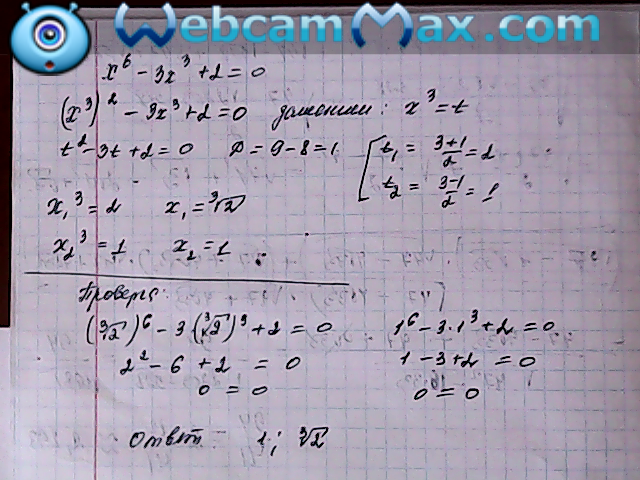 WebcamMax.com
x⁶ - 3x³ + 2 = 0
(x³)² - 3x³ + 2 = 0 заменим: x³ = t
t² - 3t + 2 = 0 D = 9 - 8 = 1 [ t₁ = (3+1)/2 = 2
t₂ = (3-1)/2 = 1
x₁³ = 2 x₁ = ∛2
x₂³ = 1 x₂ = 1
Проверка:
(∛2)⁶ - 3·(∛2)³ + 2 = 0 1⁶ - 3·1³ + 2 = 0
2² - 6 + 2 = 0 1 - 3 + 2 = 0
0 = 0 0 = 0
Ответ 1; ∛2